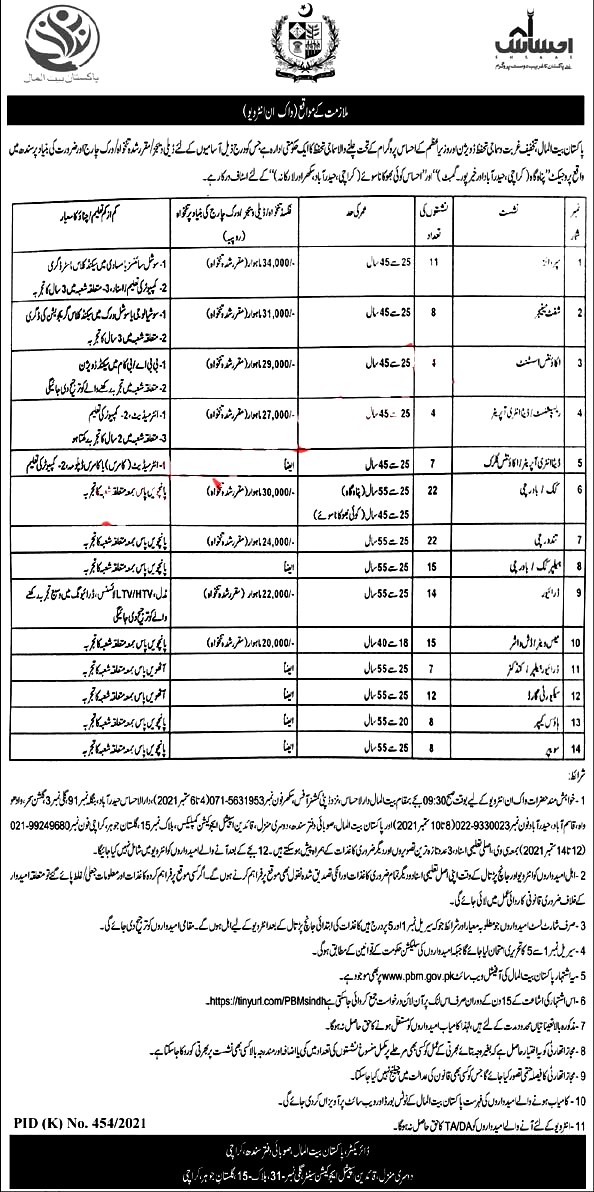 پاکستان بیت المال
احساس
EHSAAS
ملازمت کے مواقع (واک ان انٹرویو)
پاکستان بیت المال، تخفیف غربت و سماجی تحفظ ڈویژن اور وزیر اعظم کے احساس پروگرام کے تحت چلنے والا سماجی تحفظ کا ایک حکومتی ادارہ ہے جس کو درج ذیل آسامیوں کے لئے ڈیلی ویجز/مقرر شدہ تنخواہ/ورک چارج اور ضرورت کی بنیاد پر سندھ میں
واقع پروجیکٹ "پناہ گاہ (کراچی، حیدرآباد اور خیرپور۔گمبٹ)" اور "احساس کوئی بھوکا نا سوئے (کراچی، حیدرآباد، سکھر اور لاڑکانہ)" کے لئے اسٹاف درکار ہے۔
نمبر شمار نشست نشستوں کی تعداد عمر کی حد فکسڈ تنخواہ/ڈیلی ویجز/ورک چارج کی بنیاد پر تنخواہ (روپیہ) کم از کم تعلیم/چناؤ کا معیار
1 سپروائزر 11 25 سے 45 سال 34,000/- ماہوار (مقرر شدہ تنخواہ) 1- سوشل سائنسز یا مساوی میں سیکنڈ کلاس ماسٹر ڈگری
2- کمپیوٹر کی تعلیم/اسناد، 3- متعلقہ شعبہ میں 3 سال کا تجربہ
2 شفٹ مینیجر 8 25 سے 45 سال 31,000/- ماہوار (مقرر شدہ تنخواہ) 1- سوشیالوجی یا سوشل ورک میں سیکنڈ کلاس گریجویشن کی ڈگری
2- متعلقہ شعبہ میں 3 سال کا تجربہ
3 اکاؤنٹس اسسٹنٹ 4 25 سے 45 سال 29,000/- ماہوار (مقرر شدہ تنخواہ) 1- بی بی اے/بی کام میں سیکنڈ ڈویژن
2- متعلقہ شعبہ میں تجربہ رکھنے والے کو ترجیح دی جائیگی
4 ریسپشنسٹ/ڈیٹا انٹری آپریٹر 4 25 سے 45 سال 27,000/- ماہوار (مقرر شدہ تنخواہ) 1- انٹرمیڈیٹ، 2- کمپیوٹر کی تعلیم
3- متعلقہ شعبہ میں 2 سال کا تجربہ رکھتا ہو
5 ڈیٹا انٹری آپریٹر/اکاؤنٹس کلرک 7 25 سے 45 سال ایضاً 1- انٹرمیڈیٹ (کامرس) یا کامرس ڈپلومہ، 2- کمپیوٹر کی تعلیم
6 کک/باورچی 22 25 سے 55 سال (پناہ گاہ)
25 سے 45 سال (کوئی بھوکا نا سوئے) 30,000/- ماہوار (مقرر شدہ تنخواہ) پانچویں پاس بمعہ متعلقہ شعبہ کا تجربہ
7 تندورچی 22 25 سے 55 سال 24,000/- ماہوار (مقرر شدہ تنخواہ) پانچویں پاس بمعہ متعلقہ شعبہ کا تجربہ
8 ہیلپر کک/باورچی 15 25 سے 55 سال ایضاً پانچویں پاس بمعہ متعلقہ شعبہ کا تجربہ
9 ڈرائیور 14 25 سے 55 سال 22,000/- ماہوار (مقرر شدہ تنخواہ) مڈل، LTV/HTV لائسنس، ڈرائیونگ میں وسیع تجربہ رکھنے
والے کو ترجیح دی جائیگی
10 میس ویٹر/ڈش واشر 15 18 سے 40 سال 20,000/- ماہوار (مقرر شدہ تنخواہ) پانچویں پاس بمعہ متعلقہ شعبہ کا تجربہ
11 ڈرائیور ہیلپر/کنڈکٹر 7 25 سے 55 سال ایضاً آٹھویں پاس بمعہ متعلقہ شعبہ کا تجربہ
12 سیکورٹی گارڈ 12 25 سے 55 سال ایضاً آٹھویں پاس بمعہ متعلقہ شعبہ کا تجربہ
13 ہاؤس کیپر 8 20 سے 55 سال ایضاً پانچویں پاس بمعہ متعلقہ شعبہ کا تجربہ
14 سوئیپر 8 25 سے 55 سال ایضاً پانچویں پاس بمعہ متعلقہ شعبہ کا تجربہ
شرائط:
1- خواہش مند حضرات واک ان انٹرویو کے لیے بوقت صبح 09:30 بجے بمقام بیت المال دارالاحساس، نزد ڈپٹی کمشنر آفس، سکھر فون نمبر 071-5631953 (4 تا 6 ستمبر 2021)، دارالاحساس حیدرآباد، بنگلہ نمبر 91، گلی نمبر 3، گلشن سحر، وادھو
واہ، قاسم آباد، حیدرآباد فون نمبر 022-9330023 (8 تا 10 ستمبر 2021) اور پاکستان بیت المال، صوبائی دفتر سندھ، دوسری منزل، قائدین اسپیشل ایجوکیشن کمپلیکس، بلاک نمبر 15، گلستان جوہر، کراچی فون نمبر 021-99249680
(12 تا 14 ستمبر 2021) بمعہ سی وی، اصلی تعلیمی اسناد، 3 عدد تازہ ترین تصویروں اور دیگر ضروری کاغذات کے ہمراہ پیش ہو سکتے ہیں۔ 12 بجے کے بعد آنے والے امیدواروں کو انٹرویو میں شامل نہیں کیا جائیگا۔
2- اہل امیدواروں کو انٹرویو اور جانچ پڑتال کے وقت اپنی اصلی تعلیمی اسناد و دیگر تمام ضروری کاغذات اور انکی تصدیق شدہ نقول بھی فراہم کرنے ہوں گے۔ اگر کسی موقع پر فراہم کردہ کاغذات اور معلومات جعلی/غلط پائے گئے تو متعلقہ امیدوار
کے خلاف ضروری قانونی کاروائی عمل میں لائی جائے گی۔
3- صرف شارٹ لسٹ امیدواروں جو مطلوبہ معیار اور شرائط جو کہ سیریل نمبر 1 اور 5 پر درج ہیں کاغذات کی ابتدائی جانچ پڑتال کے بعد انٹرویو کے لئے اہل ہوں گے۔ مقامی امیدواروں کو ترجیح دی جائے گی۔
4- سیریل نمبر 1 سے 5 کا تحریری امتحان لیا جائے گا جبکہ امیدواروں کی سلیکشن حکومت کے قوانین کے مطابق ہوگی۔
5- یہ اشتہار پاکستان بیت المال کی آفیشل ویب سائٹ www.pbm.gov.pk پر بھی موجود ہے۔
6- اس اشتہار کی اشاعت کے 15 دن کے دوران صرف اس لنک پر آن لائن درخواست جمع کروائی جا سکتی ہے https://tinyurl.com/PBMsindh-
7- مذکورہ بالا تعیناتیاں محدود مدت کے لئے ہیں، لہٰذا کامیاب امیدواروں کو مستقلی ہونے کا حق حاصل نہ ہوگا۔
8- مجاز اتھارٹی کو یہ اختیار حاصل ہے کہ بغیر وجہ بتائے بھرتی کے عمل کو کسی بھی مرحلے پر مکمل منسوخ/نشستوں کی تعداد میں کمی یا اضافہ اور مندرجہ بالا کسی بھی نشست پر بھرتی کو روکا جا سکتا ہے۔
9- مجاز اتھارٹی کا فیصلہ حتمی تصور کیا جائے گا جس کو کسی بھی قانون کی عدالت میں چیلنج نہیں کیا جا سکتا۔
10- کامیاب ہونے والے امیدواروں کی فہرست پاکستان بیت المال کے نوٹس بورڈ اور ویب سائٹ پر آویزاں کر دی جائے گی۔
11- انٹرویو کے لئے آنے والے امیدواروں کو TA/DA کا حق حاصل نہ ہوگا۔
PID (K) No. 454/2021
ڈائریکٹر، پاکستان بیت المال، صوبائی دفتر سندھ، کراچی
دوسری منزل، قائدین اسپیشل ایجوکیشن سینٹر، گلی نمبر-31، بلاک-15، گلستان جوہر، کراچی